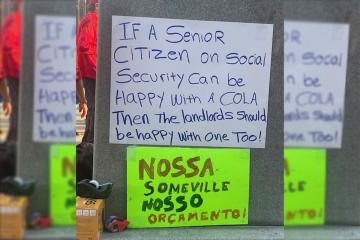 IF A SENIOR
CITIZEN ON SOCIAL
SECURITY CAN be
HAPPY WITH A COLA
THEN THE landlords should
be happy with one Too!
NOSSA
SOMEVILLE
NOSSO
ORÇAMENTO!